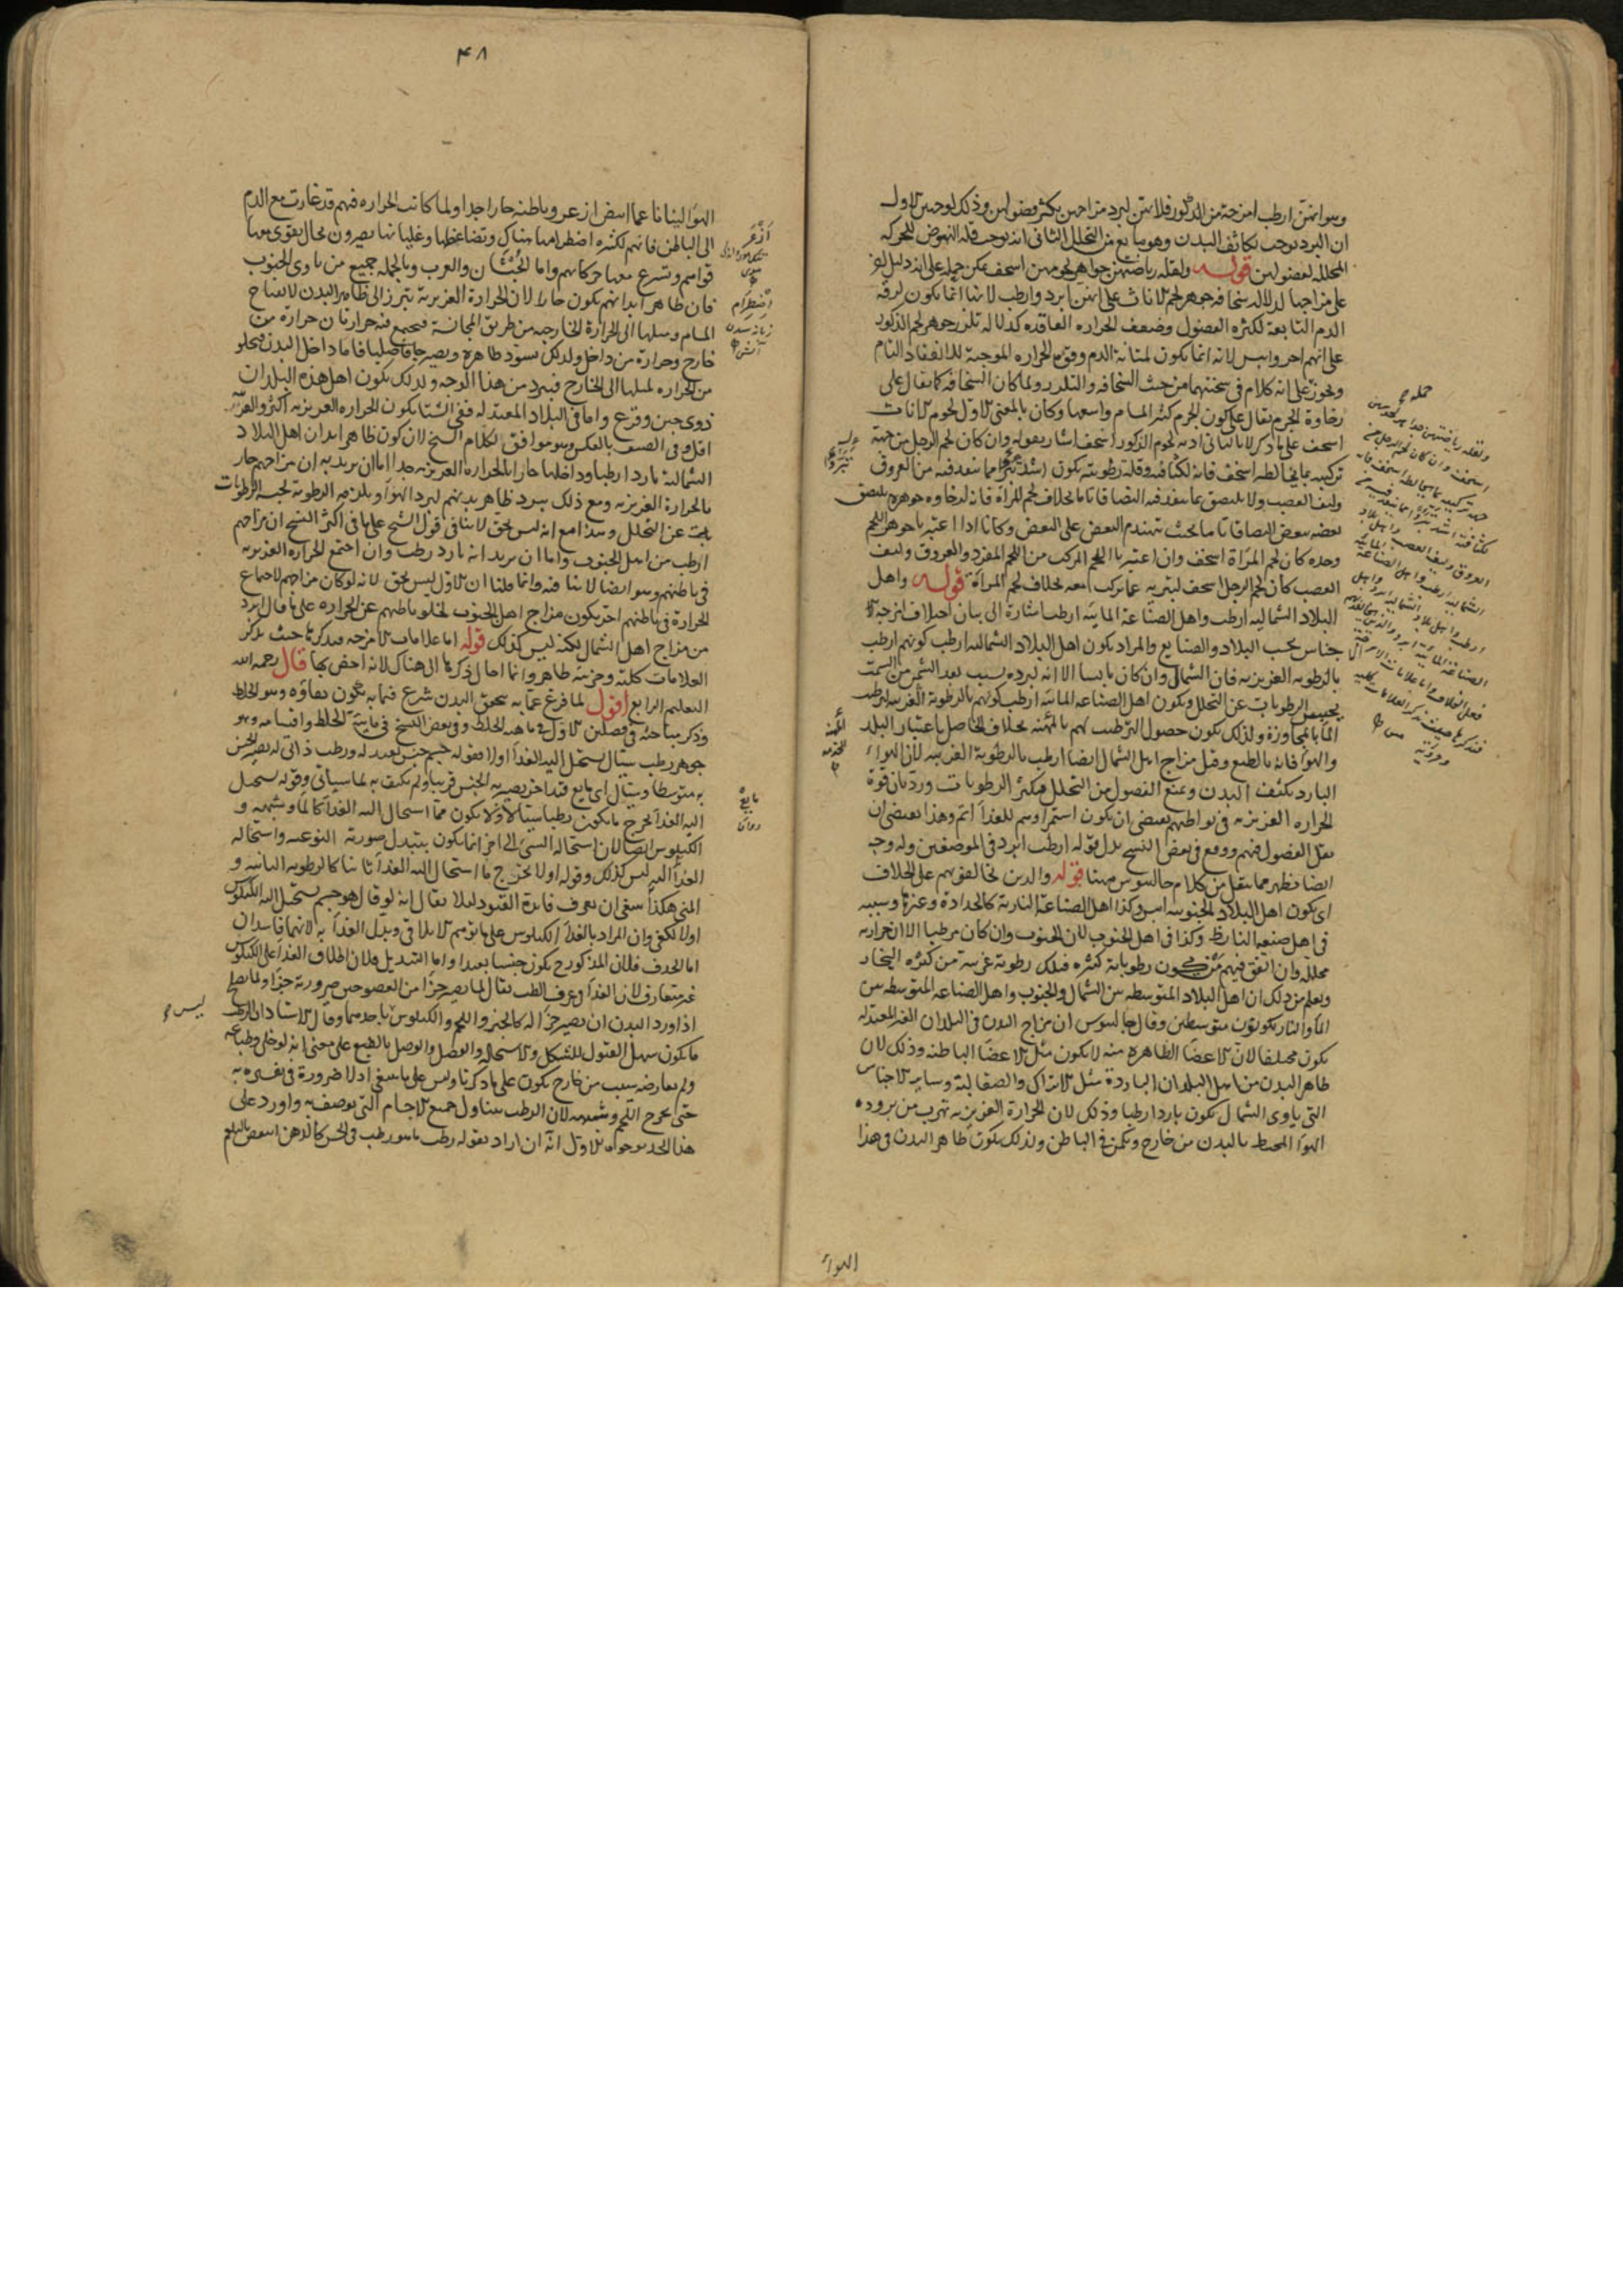 وهو انهن ارطب امزجة من الذكور فلانهن لبرد مزاجهن يكثر فضولهن وذلك لوجهين الاول
ان البرد يوجب تكاثف البدن وهو مانع من التحلل الثاني انه يوجب قلة النهوض للحركة
المحللة لفضولهن قوله ولقلة رياضتهن جواهر لحومهن اسخف يمكن حمله على انه دليل
على مزاجها لدلالة سخافة جوهر لحم الاناث على انهن ابرد وارطب لانها انما يكون لرقة
الدم التابعة لكثرة الفضول وضعف الحرارة العاقدة كدلالة تلزز جوهر لحم الذكور
على انهم احر وايبس لانه انما يكون لمتانة الدم وقوة الحرارة الموجبة للانعقاد التام
ويجوز على انه كلام في سحنتهما من حيث السخافة والتلزز ولما كان السخافة كما يقال على
رخاوة الجرم يقال على كون الجرم كثير المسام واسعها وكان بالمعنى الاول لحوم الاناث
اسخف على ما ذكر لا بالثاني اذ به لحوم الذكور اسخف اشار بقوله وان كان لحم الرجل من جهة
تركيبه بما يخالطه اسخف فانه لكثافته وقلة رطوبته يكون اشد تبرؤا مما ينفذ فيه من العروق
وليف العصب ولا يلتصق بما ينفذ فيه التصاقا تاما بخلاف لحم المرأة فانه لرخاوة جوهره يلتصق
بعضه ببعض التصاقا تاما بحيث يتهندم البعض على البعض وكانا اذا اعتبرنا جوهر اللحم
وحده كان لحم المرأة اسخف وان اعتبرنا اللحم المركب من اللحم المفرد والعروق وليف
العصب كان لحم الرجل اسخف لتبريه عما تركب معه بخلاف لحم المرأة قوله واهل
البلاد الشمالية ارطب واهل الصناعة المائية ارطب اشارة الى بيان اختلاف امزجة الا
جناس بحسب البلاد والصنايع والمراد بكون اهل البلاد الشمالية ارطب كونهم ارطب
بالرطوبة الغريزية فان الشمال وان كان يابسا الا انه لبرده بسبب بعد الشمس من السمت
يحبس الرطوبات عن التحلل وبكون اهل الصناعة المائية ارطب كونهم بالرطوبة الغريبة لترطيب
الماء بالمجاورة ولذلك يكون حصول الترطيب لهم بالمهنة بخلاف الحاصل باعتبار البلد
والهواء فانه بالطبع وقيل مزاج اهل الشمال ايضا ارطب بالرطوبة الغريبة لان الهواء
البارد يكثف البدن ويمنع الفضول من التحلل فيكثر الرطوبات ورد بان قوة
الحرارة الغريزية في بواطنهم يقتضي ان يكون استمراؤهم للغذاء اتم وهذا يقتضي ان
يقل الفضول فيهم ووقع في بعض النسخ بدل قوله ارطب ابرد في الموضعين وله وجه
ايضا فيظهر مما ينقل من كلام جالينوس ههنا قوله والذين يخالفونهم على الخلاف
اي يكون اهل البلاد الجنوبية ايبس وكذا اهل الصناعة النارية كالحدادة وغيرها وسببه
في اهل صنعة النار ظ وكذا في اهل الجنوب لان الجنوب وان كان مرطبا الا ان حرارته
محللة وان اتفق فيهم من يكون رطوباته كثيرة فتلك رطوبة غريبة من كثرة البخار
ويعلم من ذلك ان اهل البلاد المتوسطة بين الشمال والجنوب واهل الصناعة المتوسطة بين
الماء والنار يكونون متوسطين وقال جالينوس ان مزاج البدن في البلدان الغير المعتدلة
يكون مختلفا لان الاعضاء الظاهرة منه لا يكون مثل الاعضاء الباطنة وذلك لان
ظاهر البدن من اهل البلدان الباردة مثل الاتراك والصقالبة وساير الاجناس
التي ياوى الشمال يكون باردا رطبا وذلك لان الحرارة الغريزية تهرب من برودة
الهواء المحيط بالبدن من خارج ويكمن في الباطن ولذلك يكون ظاهر البدن في هذا
الهواء
٤٨
الهواء لينا ناعما ابيض ازعر وباطنه حارا جدا ولما كانت الحرارة فيهم قد غارت مع الدم
الى الباطن فانهم لكثرة اضطرامها هناك وتضاغطها وغليانها يصيرون بحال يقوى معها
قواهم ويسرع معها حركاتهم واما الحبشان والعرب وبالجملة جميع من ياوى الجنوب
فان ظاهر ابدانهم يكون حارا لان الحرارة الغريزية تبرز الى ظاهر البدن لانفتاح
المسام وميلها الى الحرارة الخارجة من طريق المجانسة فيجتمع فيه حرارتان حرارة من
خارج وحرارة من داخل ولذلك يسود ظاهره ويصير جافا صلبا فاما داخل البدن فيخلو
من الحرارة لميلها الى الخارج فيبرد من هذا الوجه ولذلك يكون اهل هذه البلدان
ذوي جبن وفزع واما في البلاد المعتدلة ففي الشتاء يكون الحرارة الغريزية اكثر
اقل وفي الصيف بالعكس وهو موافق لكلام الشيخ لان كون ظاهر ابدان اهل البلاد
الشمالية باردا رطبا وداخلها حارا بالحرارة الغريزية جدا اما ان يريد به ان مزاجهم حار
بالحرارة الغريزية ومع ذلك يبرد ظاهر بدنهم لبرد الهواء ويلزمه الرطوبة لحبسه الرطوبات
عن التحلل وهذا مع انه ليس بحق لا ينافي قول الشيخ على ما في اكثر النسخ ان مزاجهم
ارطب من اهل الجنوب واما ان يريد انه بارد رطب وان اجتمع الحرارة الغريزية
في باطنهم وهو ايضا لا ينافيه وانما قلنا ان الاول ليس بحق لانه لو كان مزاجهم لاجتماع
الحرارة في باطنهم احر يكون مزاج اهل الجنوب لخلو باطنهم عن الحرارة على ما قال ابرد
من مزاج اهل الشمال لكنه ليس كذلك قوله اما علامات الامزجة فنذكرها حيث نذكر
العلامات كلية وجزئية ظاهر وانما احال ذكرها الى هناك لانه اخص بها قال رحمه الله
التعليم الرابع اقول لما فرغ عما به تحقق البدن شرع فيما به يكون بقاؤه وهو الخلط
وذكر مباحثه في فصلين الاول في ماهية الخلط وفي بعض النسخ في مائية الخلط واقسامه وهو
جوهر رطب سيال يستحيل اليه الغذاء اولا فقوله جسم جنس بعيد له ورطب ذاتي له يصير الجنس
به متوسطا وسيال اي مايع قيد اخر يصير به الجنس قريبا ولم يكتف به لما سياتي وقوله يستحيل
اليه الغذاء يخرج ما يكون رطبا سيالا ولا يكون مما استحال اليه الغذاء كالماء وشبهه و
الكيلوس ايضا لان استحالة الشيء الى اخر انما يكون بتبدل صورته النوعية واستحالة
الغذاء اليه ليس كذلك وقوله اولا يخرج ما استحال اليه الغذاء ثانيا كالرطوبة الثانية و
المني هكذا ينبغي ان يعرف فايدة القيود لئلا يقال انه لو قال هو جسم يستحيل اليه الكيلوس
اولا لكفى وان المراد بالغذاء الكيلوس على ما توهم الايلاقي وبدل الغذاء به لانهما فاسدان
اما الحذف فلان المذكور ح يكون جنسا بعيدا واما التبديل فلان اطلاق الغذاء على الكيلوس
غير متعارف لان الغذاء في عرف الطب يقال لما يصير جزءا من العضو حين صيرورته جزءا ولما يصلح
اذا ورد البدن ان يصير جزءا له كالخبز واللحم والكيلوس باحدهما وقال الاستاد ان الرطب
ما يكون سهل القبول للتشكل والاستحالة والفصل والوصل بالطبع على معنى انه لو خلي وطباعه
ولم يعارضه سبب من خارج يكون على ما ذكرنا وليس على ما ينبغي اذ لا ضرورة في تفسيره به
حتى يخرج اللحم وشبهه لان الرطب يتناول جميع الاجسام التي توصف به واورد على
هذا الحد بوجوه الاول انه ان اراد بقوله رطب ما هو رطب في الحس كالدهن انتقض بالبلغم